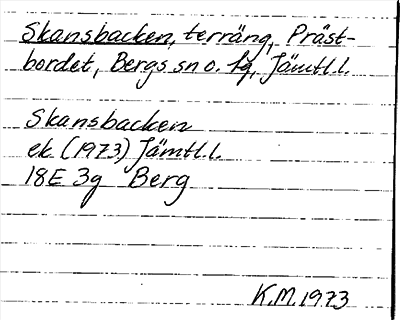 Skansbacken, terräng, Präst-
bordet, Bergs sn o. tg, Jämtl.l.
Skansbacken
ek. (1973) Jämtl.l.
18E 3g Berg
K.M. 1973